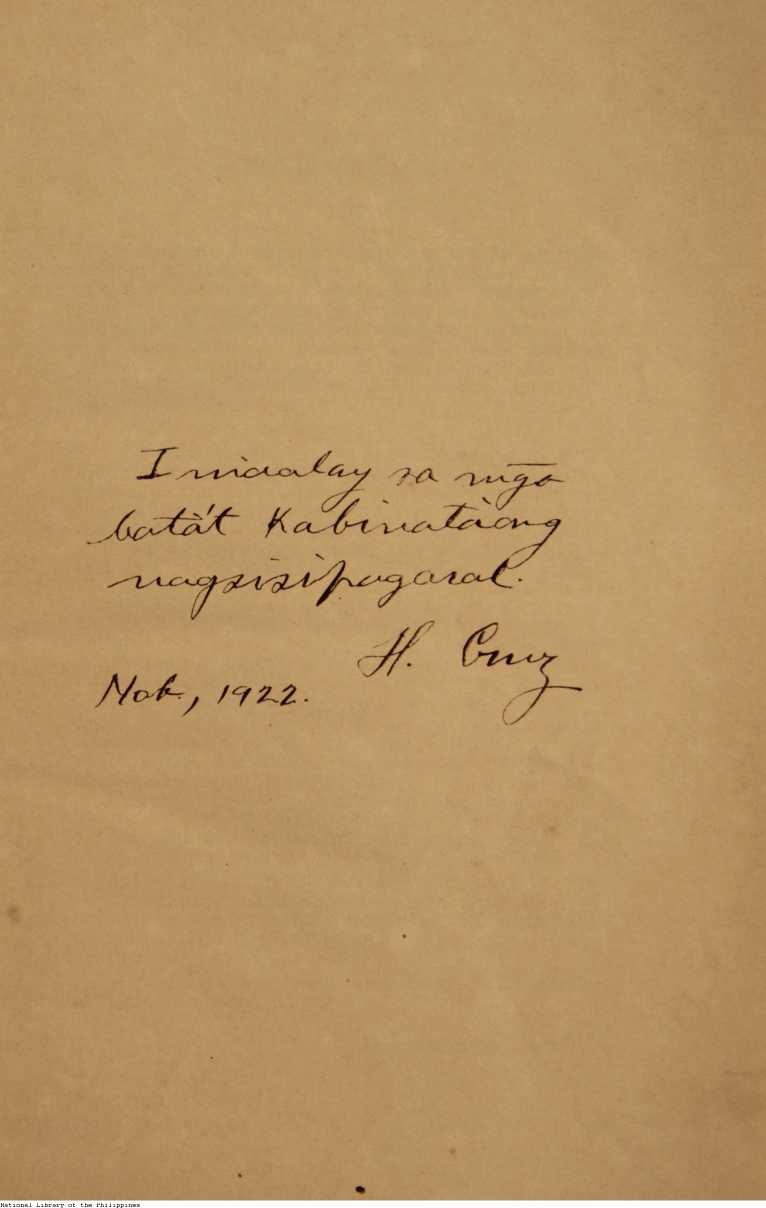 Iniaalay sa mga
batà't Kabinatàang
nagsisipagaral.
H. Cruz
Nob., 1922.
National Library of the Philippines